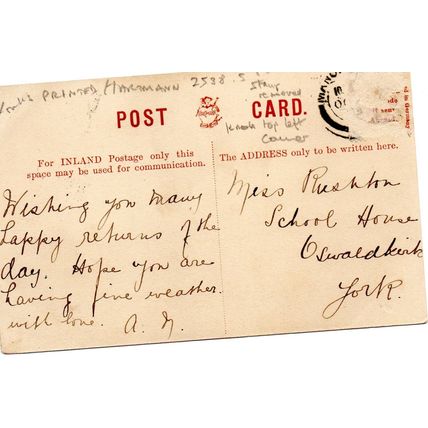 PRINTED HARTMANN 2538.5
Stamp
removed
knock top left
corner
POST CARD.
For INLAND Postage only this
space may be used for communication.
The ADDRESS only to be written here.
Wishing you many
happy returns of the
day. Hope you are
having fine weather.
with love. A. M.
Miss Rushton
School House
Oswaldkirk
York.